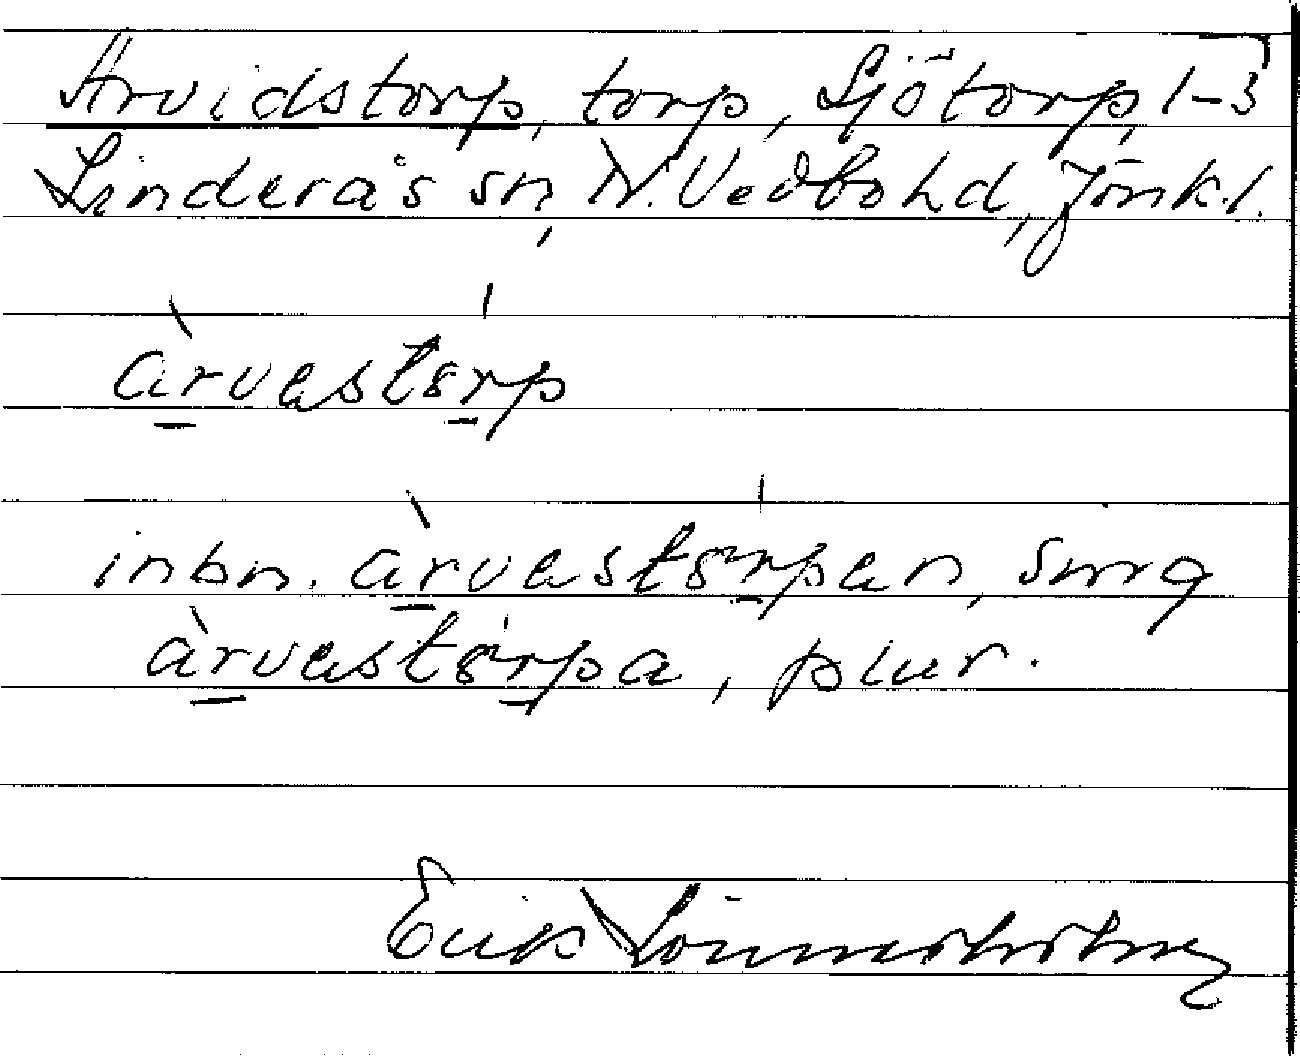 Arvidstorp, torp, Sjötorp, 1-3
Linderås sn, N. Vedbo hd, Jönk. l.
àrvastórp
inbn. àrvastórpan, sing
àrvastórpa, plur.
Erik